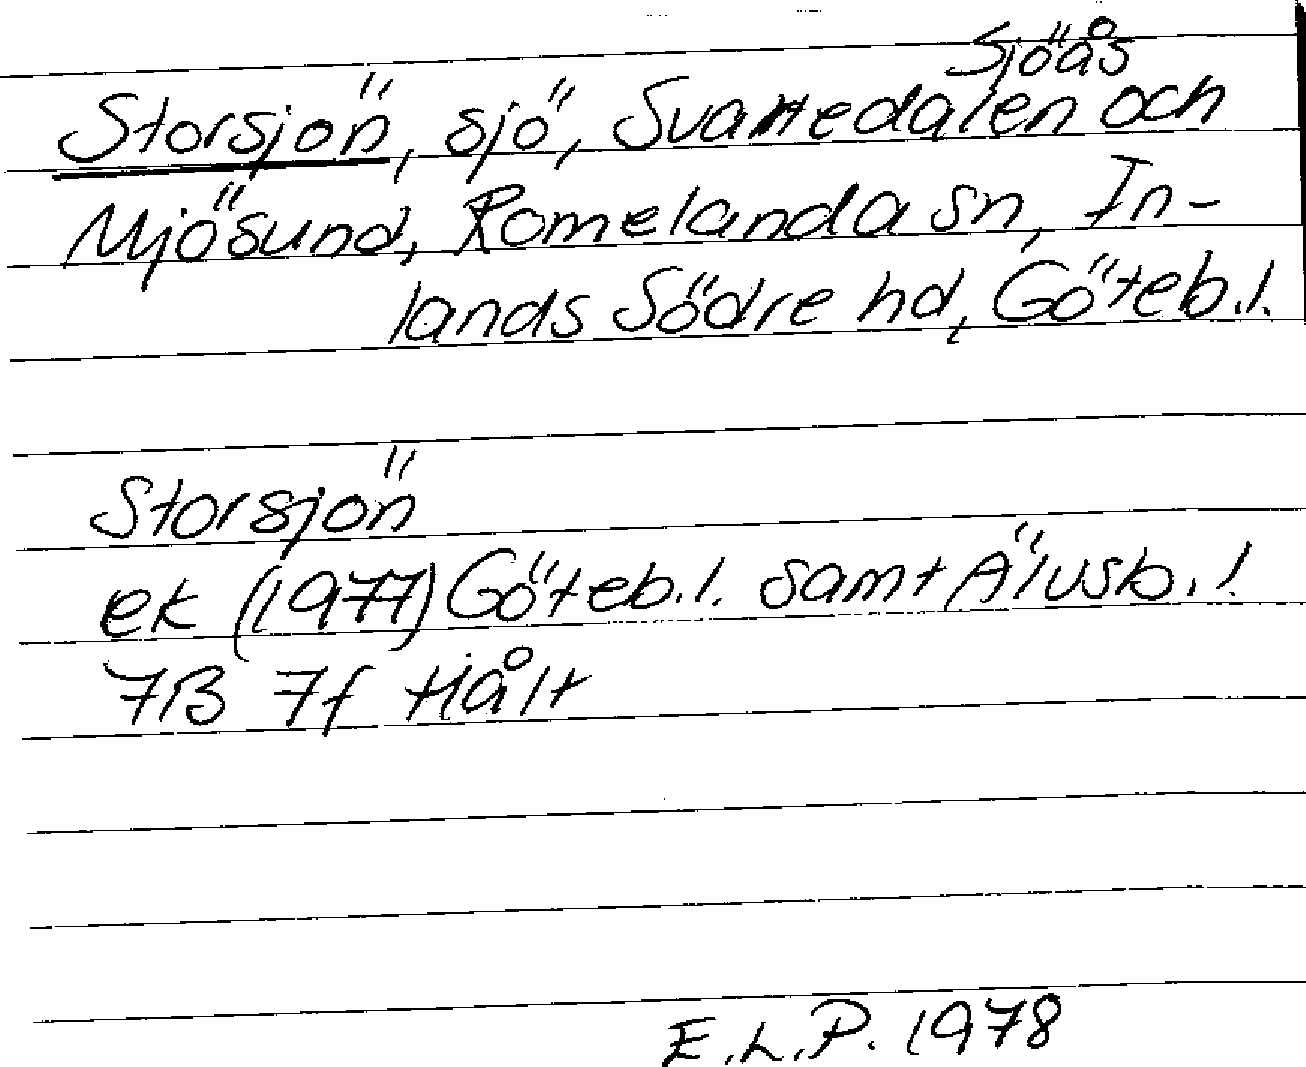 Sjöås
Storsjön, sjö, Svartedalen och
Mjösund, Romelanda sn, In-
lands Södre hd, Göteb.l.
Storsjön
ek (1977) Göteb.l. samt Älvsb.l.
7B 7f Hålt
E.L.P. 1978